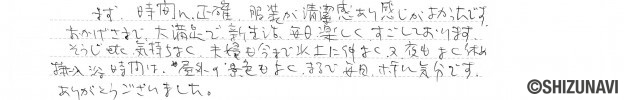 まず、時間に正確、服装が清潔感あり感じがよかったです。
おかげさまで、大満足で新生活を毎日楽しくすごしております。
そうじetc気持ちよく、夫婦も今まで以上に仲よく、又夜もよく休め
入浴時間は、屋外の景色もよく、まるで毎日ホテル気分です。
ありがとうございました。
©SHIZUNAVI